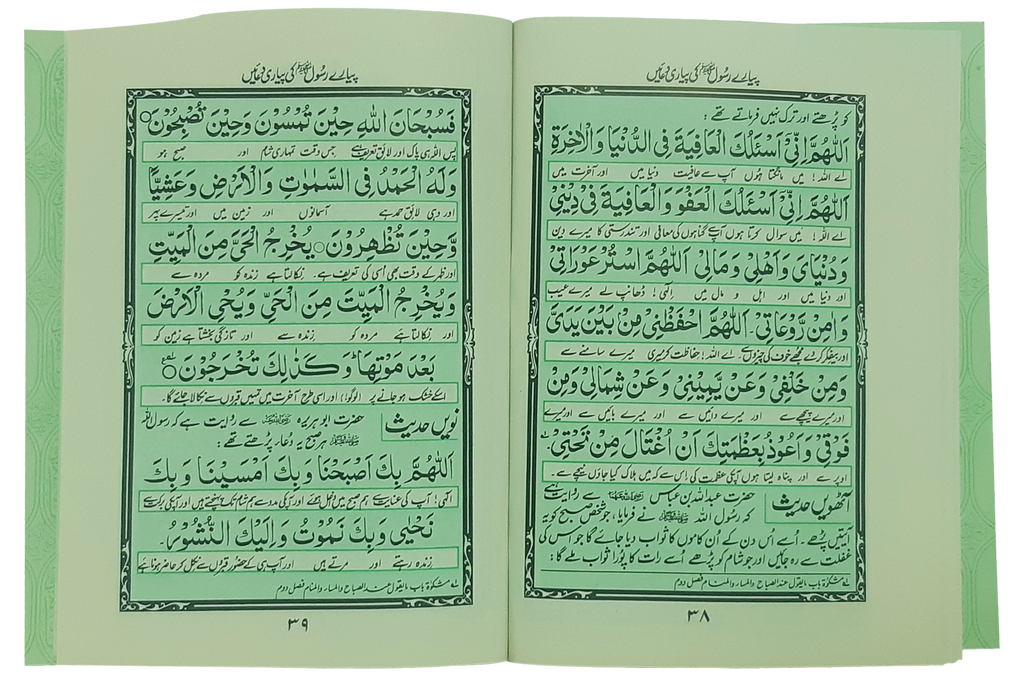 پیارے رسول ﷺ کی پیاری دعائیں
کو پڑھتے اور ترک نہیں فرماتے تھے :
اَللّٰهُمَّ اِنِّیْ اَسْئَلُكَ الْعَافِیَةَ فِی الدُّنْیَا وَالْاٰخِرَةِ
اے اللہ! میں مانگتا ہوں آپ سے عافیت دنیا میں اور آخرت میں
اَللّٰهُمَّ اِنِّیْ اَسْئَلُكَ الْعَفْوَ وَالْعَافِیَةَ فِیْ دِیْنِیْ
اے اللہ! میں سوال کرتا ہوں آپ سے گناہوں کی معافی اور تندرستی کا میرے دین
وَدُنْیَایَ وَاَهْلِیْ وَمَالِیْ اَللّٰهُمَّ اسْتُرْ عَوْرَاتِیْ
اور دنیا میں اور اہل و مال میں الٰہی! ڈھانپ لے میرے عیب
وَاٰمِنْ رَّوْعَاتِیْ۔ اَللّٰهُمَّ احْفَظْنِیْ مِنْ بَیْنِ یَدَیَّ
اور بیفکر کر دے مجھے خوف کی چیزوں سے۔ اے اللہ! حفاظت کر میری میرے سامنے سے
وَمِنْ خَلْفِیْ وَعَنْ یَّمِیْنِیْ وَعَنْ شِمَالِیْ وَمِنْ
اور میرے پیچھے سے اور میرے دائیں سے اور میرے بائیں سے اور میرے
فَوْقِیْ وَاَعُوْذُ بِعَظْمَتِكَ اَنْ اُغْتَالَ مِنْ تَحْتِیْ۔
اوپر سے اور پناہ لیتا ہوں آپکی عظمت کی اس سے کہ میں ہلاک کیا جاؤں نیچے سے۔
آٹھویں حدیث حضرت عبداللہ بن عباس سے روایت ہے
کہ رسول اللہ ﷺ نے فرمایا، جو شخص صبح کو یہ
آیتیں پڑھے۔ اُسے اُس دن کے اُن کاموں کا ثواب دیا جائے گا جو اس کی
غفلت سے رہ جائیں اور جو شام کو پڑھے اُسے رات کا پورا ثواب ملے گا :
لے مشکوٰۃ باب مایقول عند الصباح والمساء والمنام فصل دوم
۳۸
پیارے رسول ﷺ کی پیاری دعائیں
فَسُبْحَانَ اللّٰهِ حِیْنَ تُمْسُوْنَ وَحِیْنَ تُصْبِحُوْنَ
پس اللہ ہی پاک اور لائق تعریف ہے جس وقت تمہاری شام اور صبح ہو
وَلَهُ الْحَمْدُ فِی السَّمٰوٰتِ وَالْاَرْضِ وَعَشِیًّا
اور وہی لائق حمد ہے آسمانوں اور زمین میں اور تیسرے پہر
وَّحِیْنَ تُظْهِرُوْنَ یُخْرِجُ الْحَیَّ مِنَ الْمَیِّتِ
اور ظہر کے وقت بھی اُسی کی تعریف ہے۔ نکالتا ہے زندہ کو مردہ سے
وَیُخْرِجُ الْمَیِّتَ مِنَ الْحَیِّ وَیُحْیِ الْاَرْضَ
اور نکالتا ہے مردہ کو زندہ سے اور تازگی بخشتا ہے زمین کو
بَعْدَ مَوْتِهَا وَكَذٰلِكَ تُخْرَجُوْنَ
اسکے خشک ہو جانے پر (لوگو!) اور اسی طرح آخرت میں تمہیں قبروں سے نکالا جائے گا۔
نویں حدیث حضرت ابوہریرہ سے روایت ہے کہ رسول اللہ
ﷺ ہر صبح یہ دُعا پڑھتے تھے :
اَللّٰهُمَّ بِكَ اَصْبَحْنَا وَبِكَ اَمْسَیْنَا وَبِكَ
الٰہی! آپ کی عنایت سے ہم صبح میں داخل ہوئے اور آپکی مدد سے ہم شام تک پہنچتے ہیں اور آپکی برکت سے
نَحْیٰی وَبِكَ نَمُوْتُ وَاِلَیْكَ النُّشُوْرُ۔
زندہ رہتے اور مرتے ہیں اور آپ ہی کے حضور قبروں سے نکل کر حاضر ہونا ہے
لے مشکوٰۃ باب مایقول عند الصباح والمساء والمنام فصل دوم
۳۹